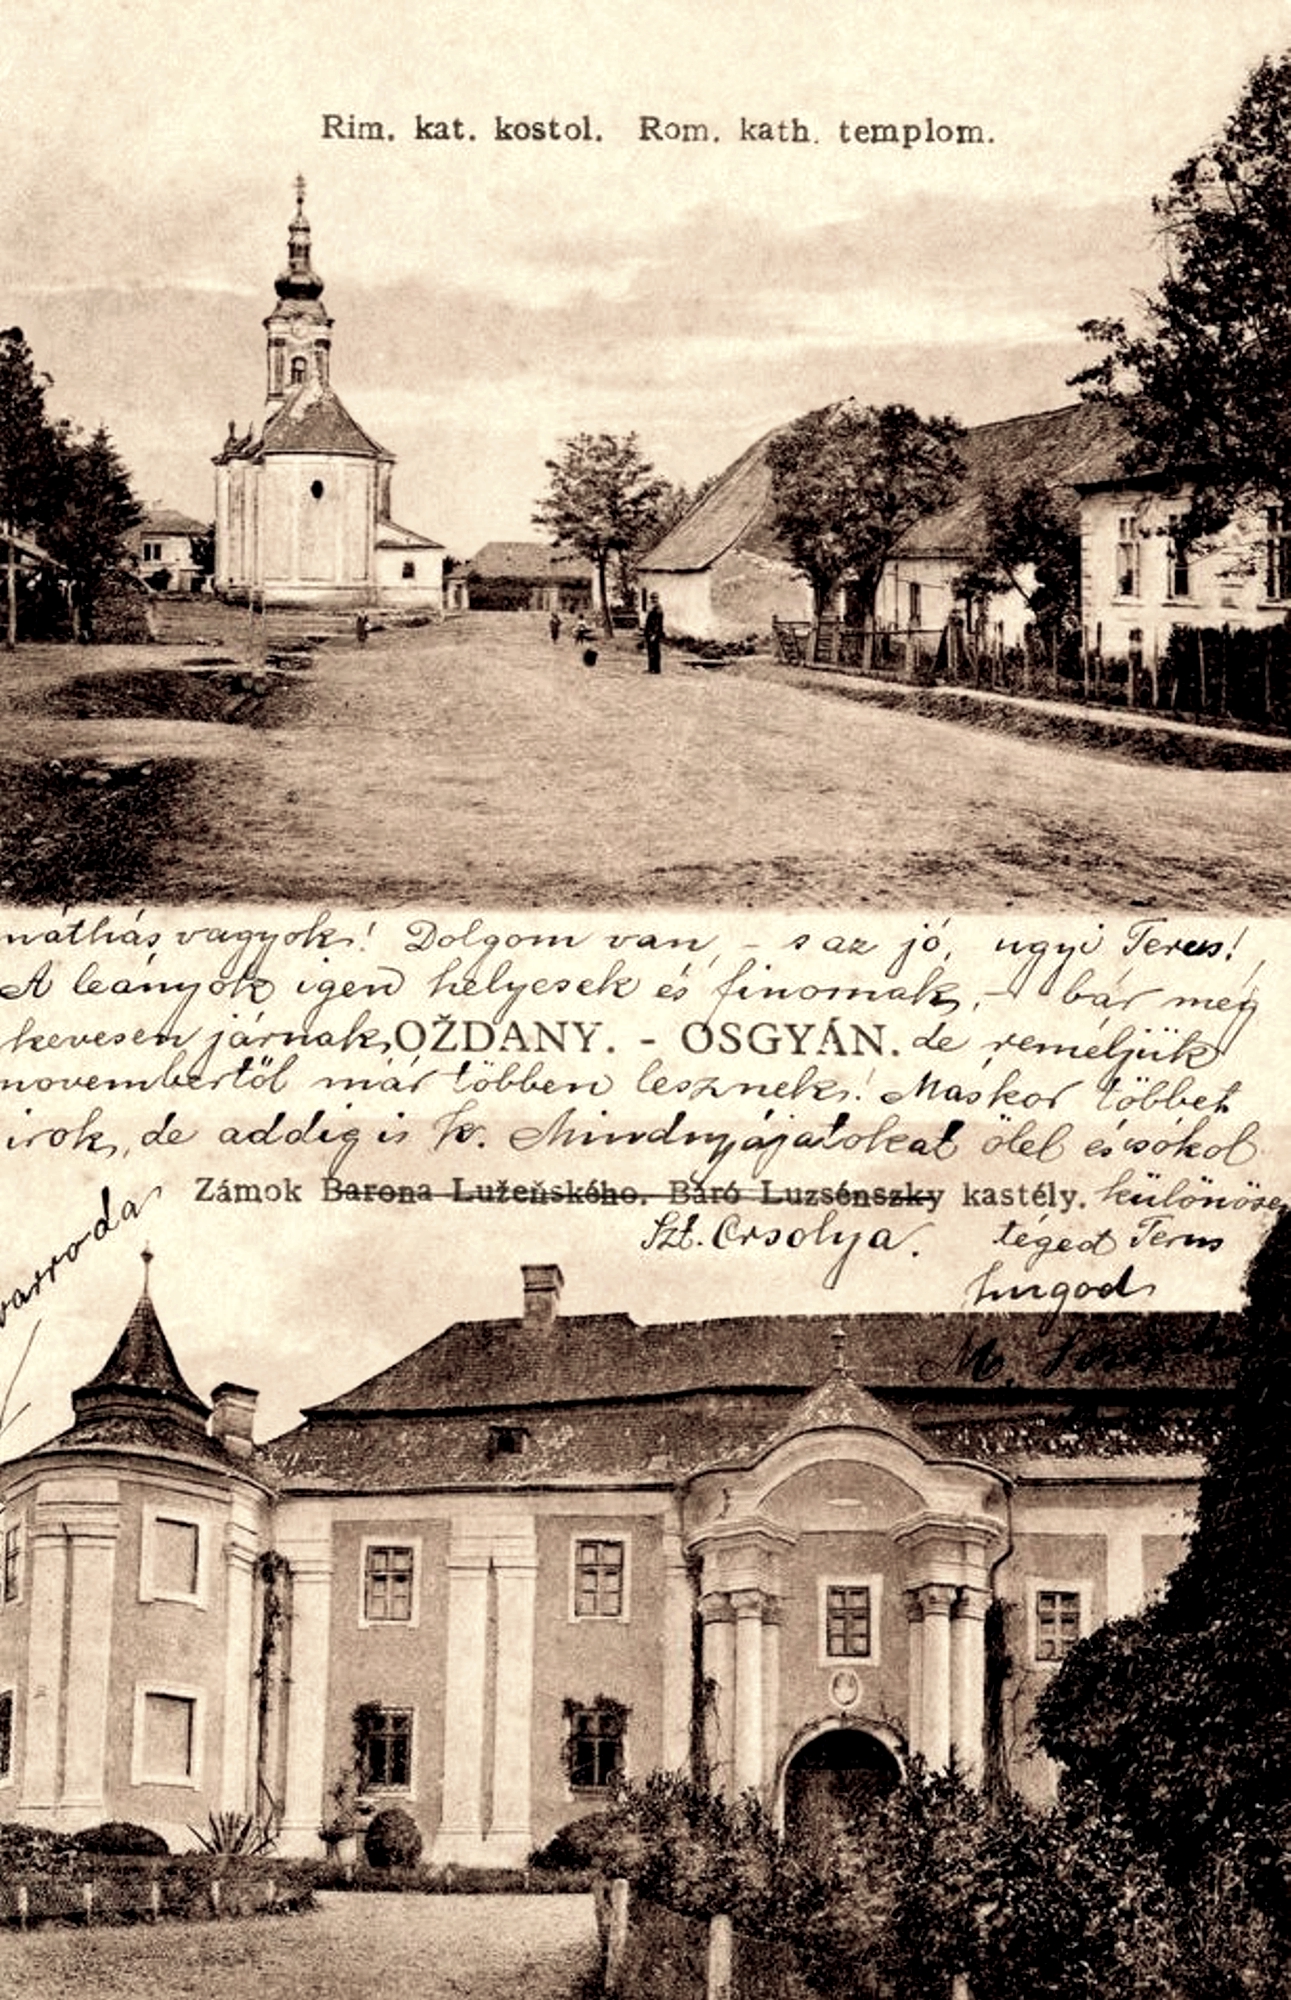 Rim. kat. kostol. Rom. kath. templom.
náthás vagyok! Dolgom van, - s az jó, ugyi Terus!
A leányok igen helyesek és finomak, - bár még
kevesen járnak, OŽDANY. - OSGYÁN. de reméljük
novembertől már többen lesznek! Máskor többet
irok, de addig is K. Mindnyájatokat ölel és csókol
Zámok Barona Lužeňského. Báró Luzsénszky kastély. különösen
Szt. Orsolya. téged Terus
varroda
M.